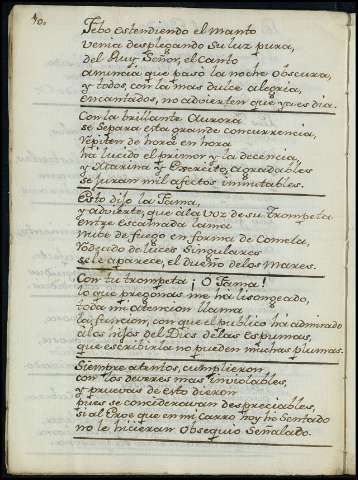 40.
Febo estendiendo el manto
venia desplegando su luz pura,
del Ruy Señor, el canto
anuncia que pasó la noche obscura,
y todos, con la mas dulce alegria,
encantados, no advierten que ya es dia.
Con la brillante Aurora
se separa esta grande concurrencia,
repiten de hora en hora
ha lucido el primor y la decencia,
y Marina y Exercito, agradables
se juran mil afectos inmutables.
Esto dijo la Fama,
y advierte, que á la voz de su Trompeta
entre escamada lama
Nube de fuego en forma de Cometa,
rodeado de luces singulares
se le aparece, el dueño de los Mares.
Con tu trompeta ¡O Fama!
lo que pregonas me ha lisongeado,
toda mi atencion llama
la funcion, con que el publico ha admirado
á los hijos del Dios de las espumas,
que escribirla no pueden muchas plumas.
Siempre atentos, cumplieron
con los deveres mas inviolables,
y pruevas de esto dieron
pues se consideravan despreciables,
si al Eroe que en mi Carro hoy he sentado
no le hicieran obsequio señalado.